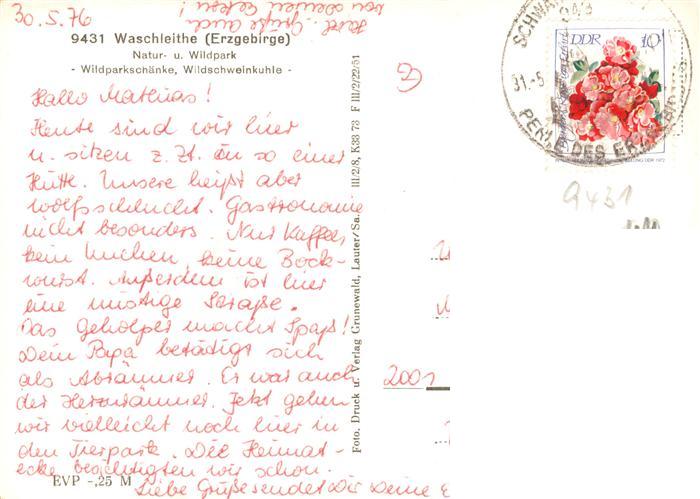 30.5.76
Herzl. Grüße auch
von meinen Eltern!
9431 Waschleithe (Erzgebirge)
Natur- u. Wildpark
- Wildparkschänke, Wildschweinkuhle -
Hallo Mathias!
Heute sind wir hier
u. sitzen z. Zt. in so einer
Hütte. Unsere heißt aber
Wolfsschlucht. Gastronomie
nicht besonders. Nur Kaffee,
kein Kuchen, keine Bock-
wurst. Außerdem ist hier
eine mistige Straße.
Das Geholper macht Spaß!
Dein Papa betätigt sich
als Abräumer. Er war auch
der Heranräumer. Jetzt gehen
wir vielleicht noch hier in
den Tierpark. Die Heimat-
ecke besichtigten wir schon.
Liebe Grüße sendet Dir Deine E
EVP -,25 M
Foto, Druck u. Verlag Grunewald, Lauter/Sa. III/2/8, K33 73 F III/2/22/51
SCHWA
31.-5
PERLE DES ERZGEBIRGES
DDR 10
DDR 1972
9431
2001